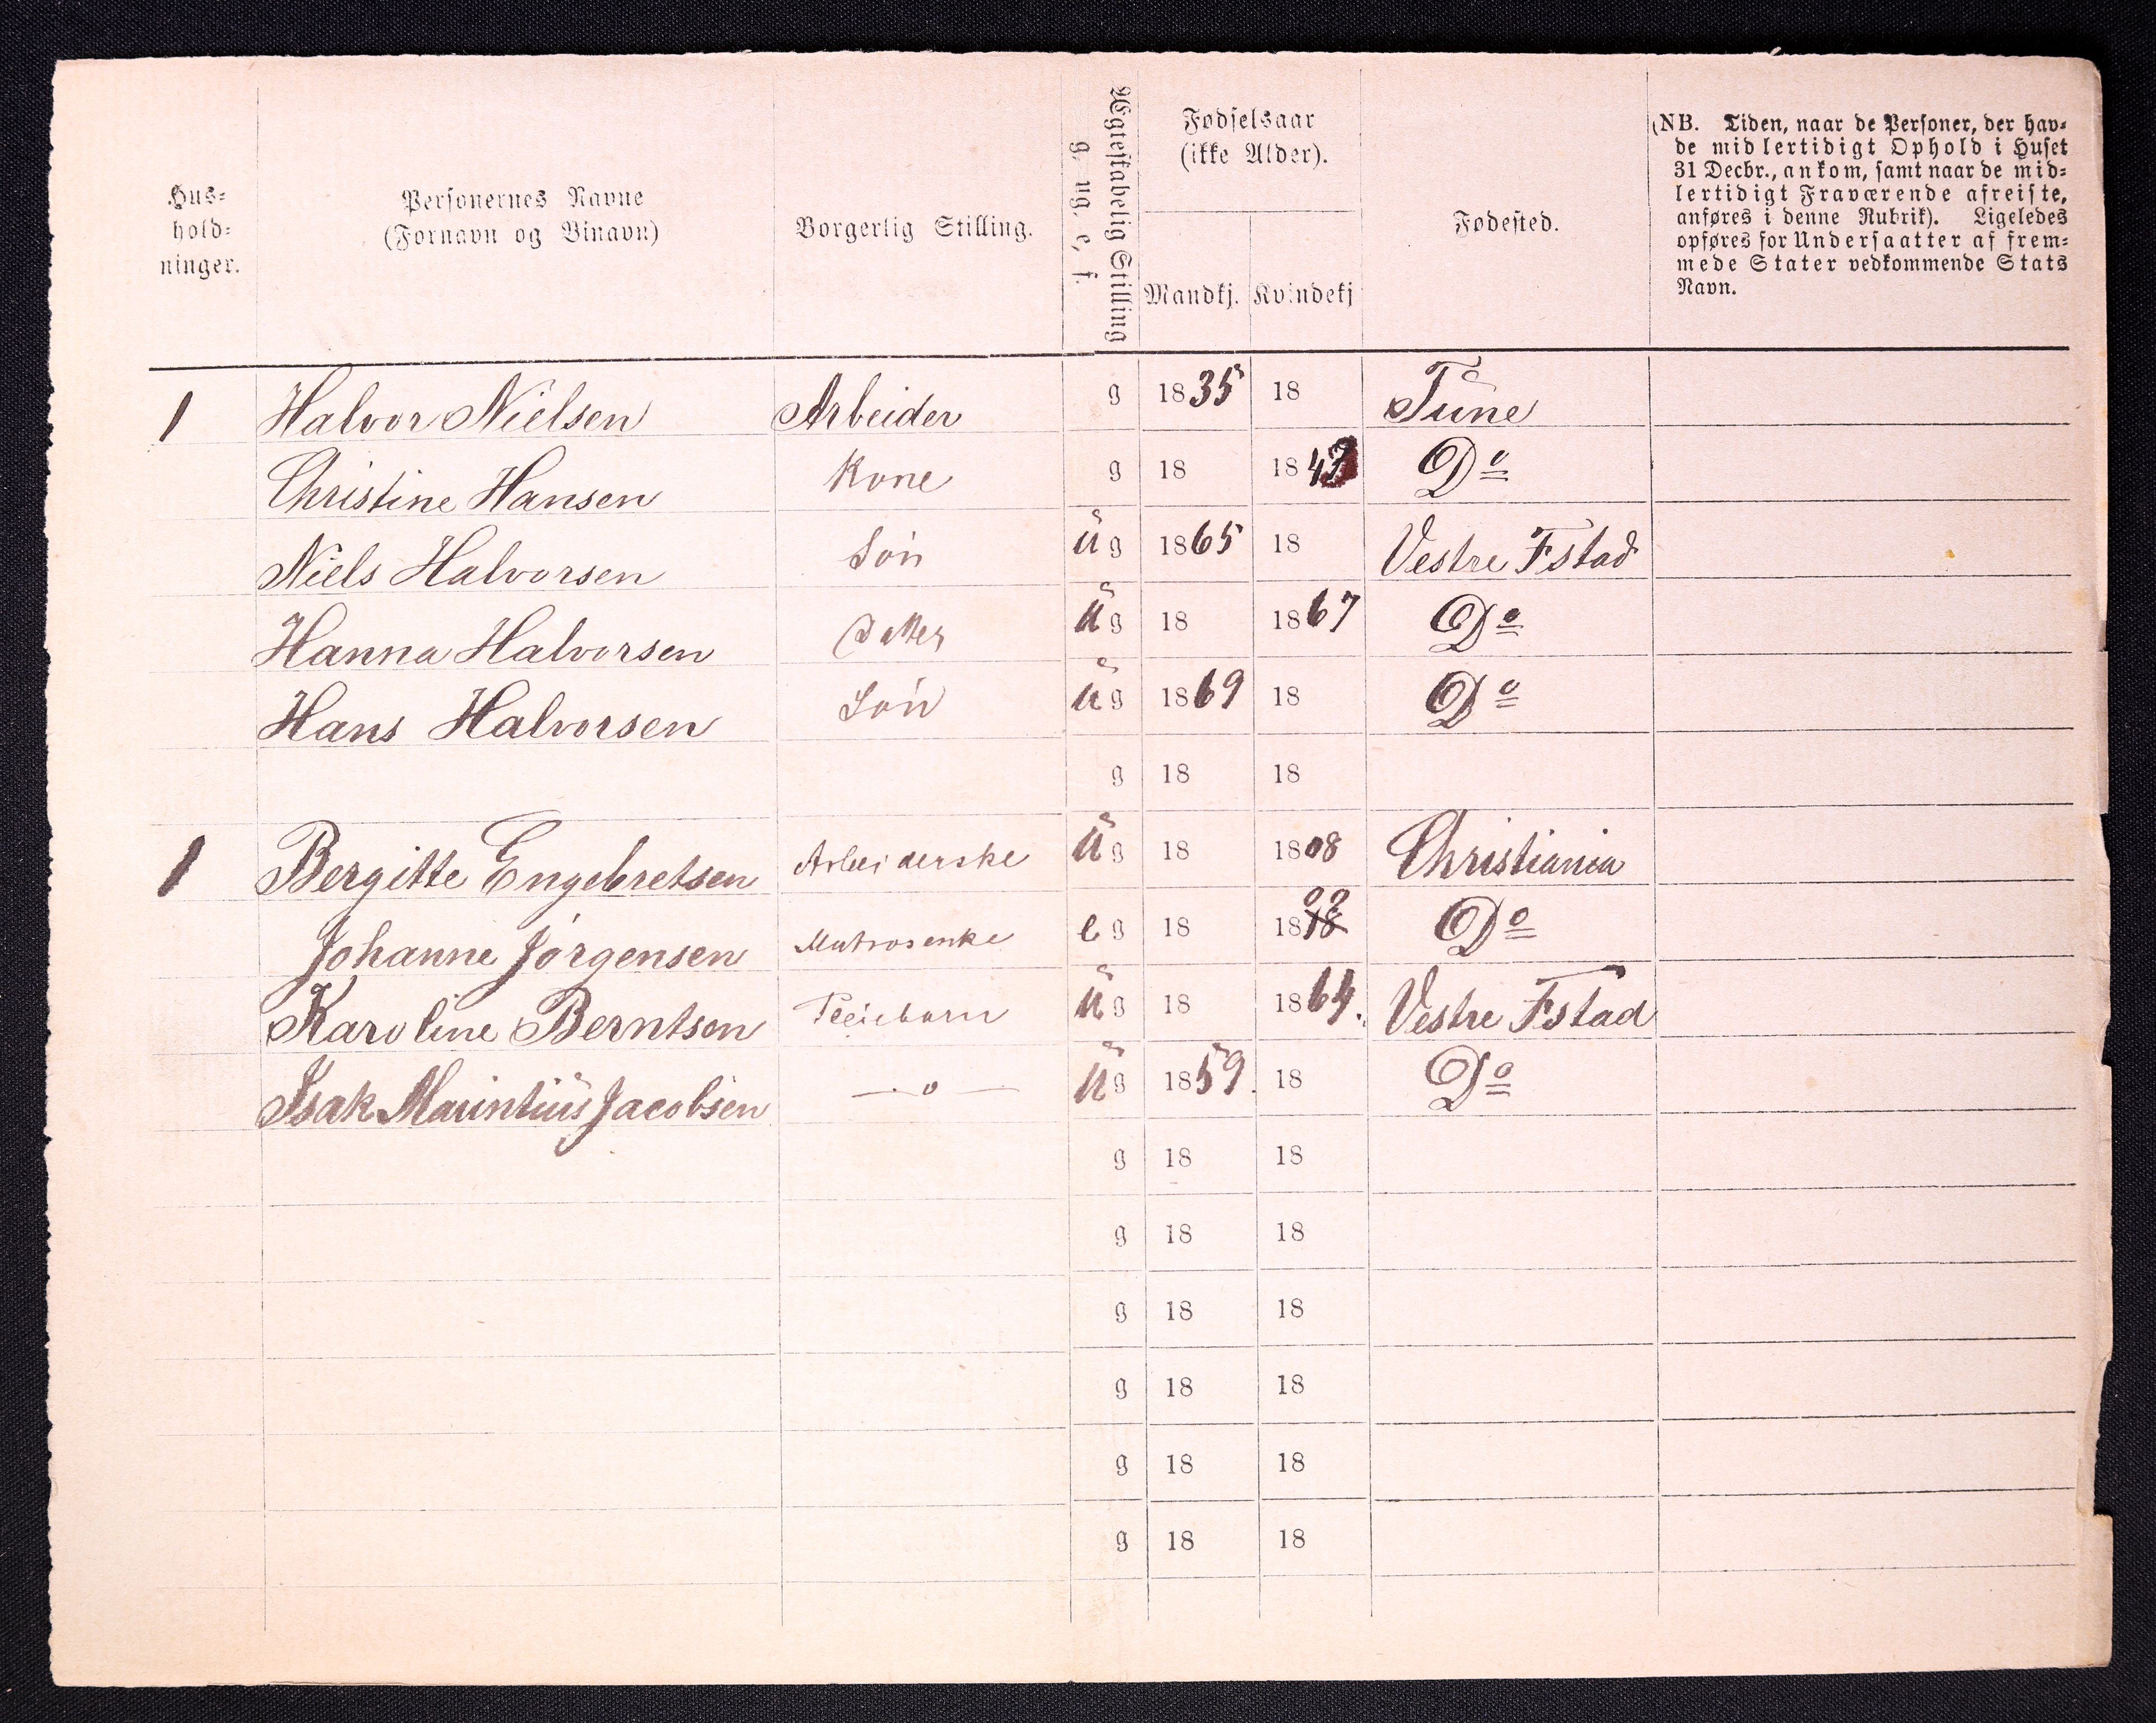 Hus-
hold-
ninger.
Personernes Navne
(Fornavn og Binavn)
Borgerlig Stilling.
Ægteskabelig Stilling
g, ug, e, f.
Fødselsaar
(ikke Alder).
Mandkj. Kvindekj
Fødested.
(NB. Tiden, naar de Personer, der hav-
de midlertidigt Ophold i Huset
31 Decbr., ankom, samt naar de mid-
lertidigt Fraværende afreiste,
anføres i denne Rubrik). Ligeledes
opføres for Undersaatter af frem-
mede Stater vedkommende Stats
Navn.
1 Halvor Nielsen Arbeider g 1835 18 Tune
Christine Hansen Kone g 18 18 Do
Niels Halvorsen Søn ug 1865 18 Vestre Fstad
Hanna Halvorsen Datter ug 18 1867 Do
Hans Halvorsen Søn ug 1869 18 Do
g 18 18
1 Bergitte Engebretsen Arbeiderske ug 18 1808 Christiania
Johanne Jørgensen Matrosenke eg 18 18 Do
Karoline Berntsen Pleiebarn ug 18 1864. Vestre Fstad
Isak Marintius Jacobsen —"— ug 1859. 18 Do
g 18 18
g 18 18
g 18 18
g 18 18
g 18 18
g 18 18